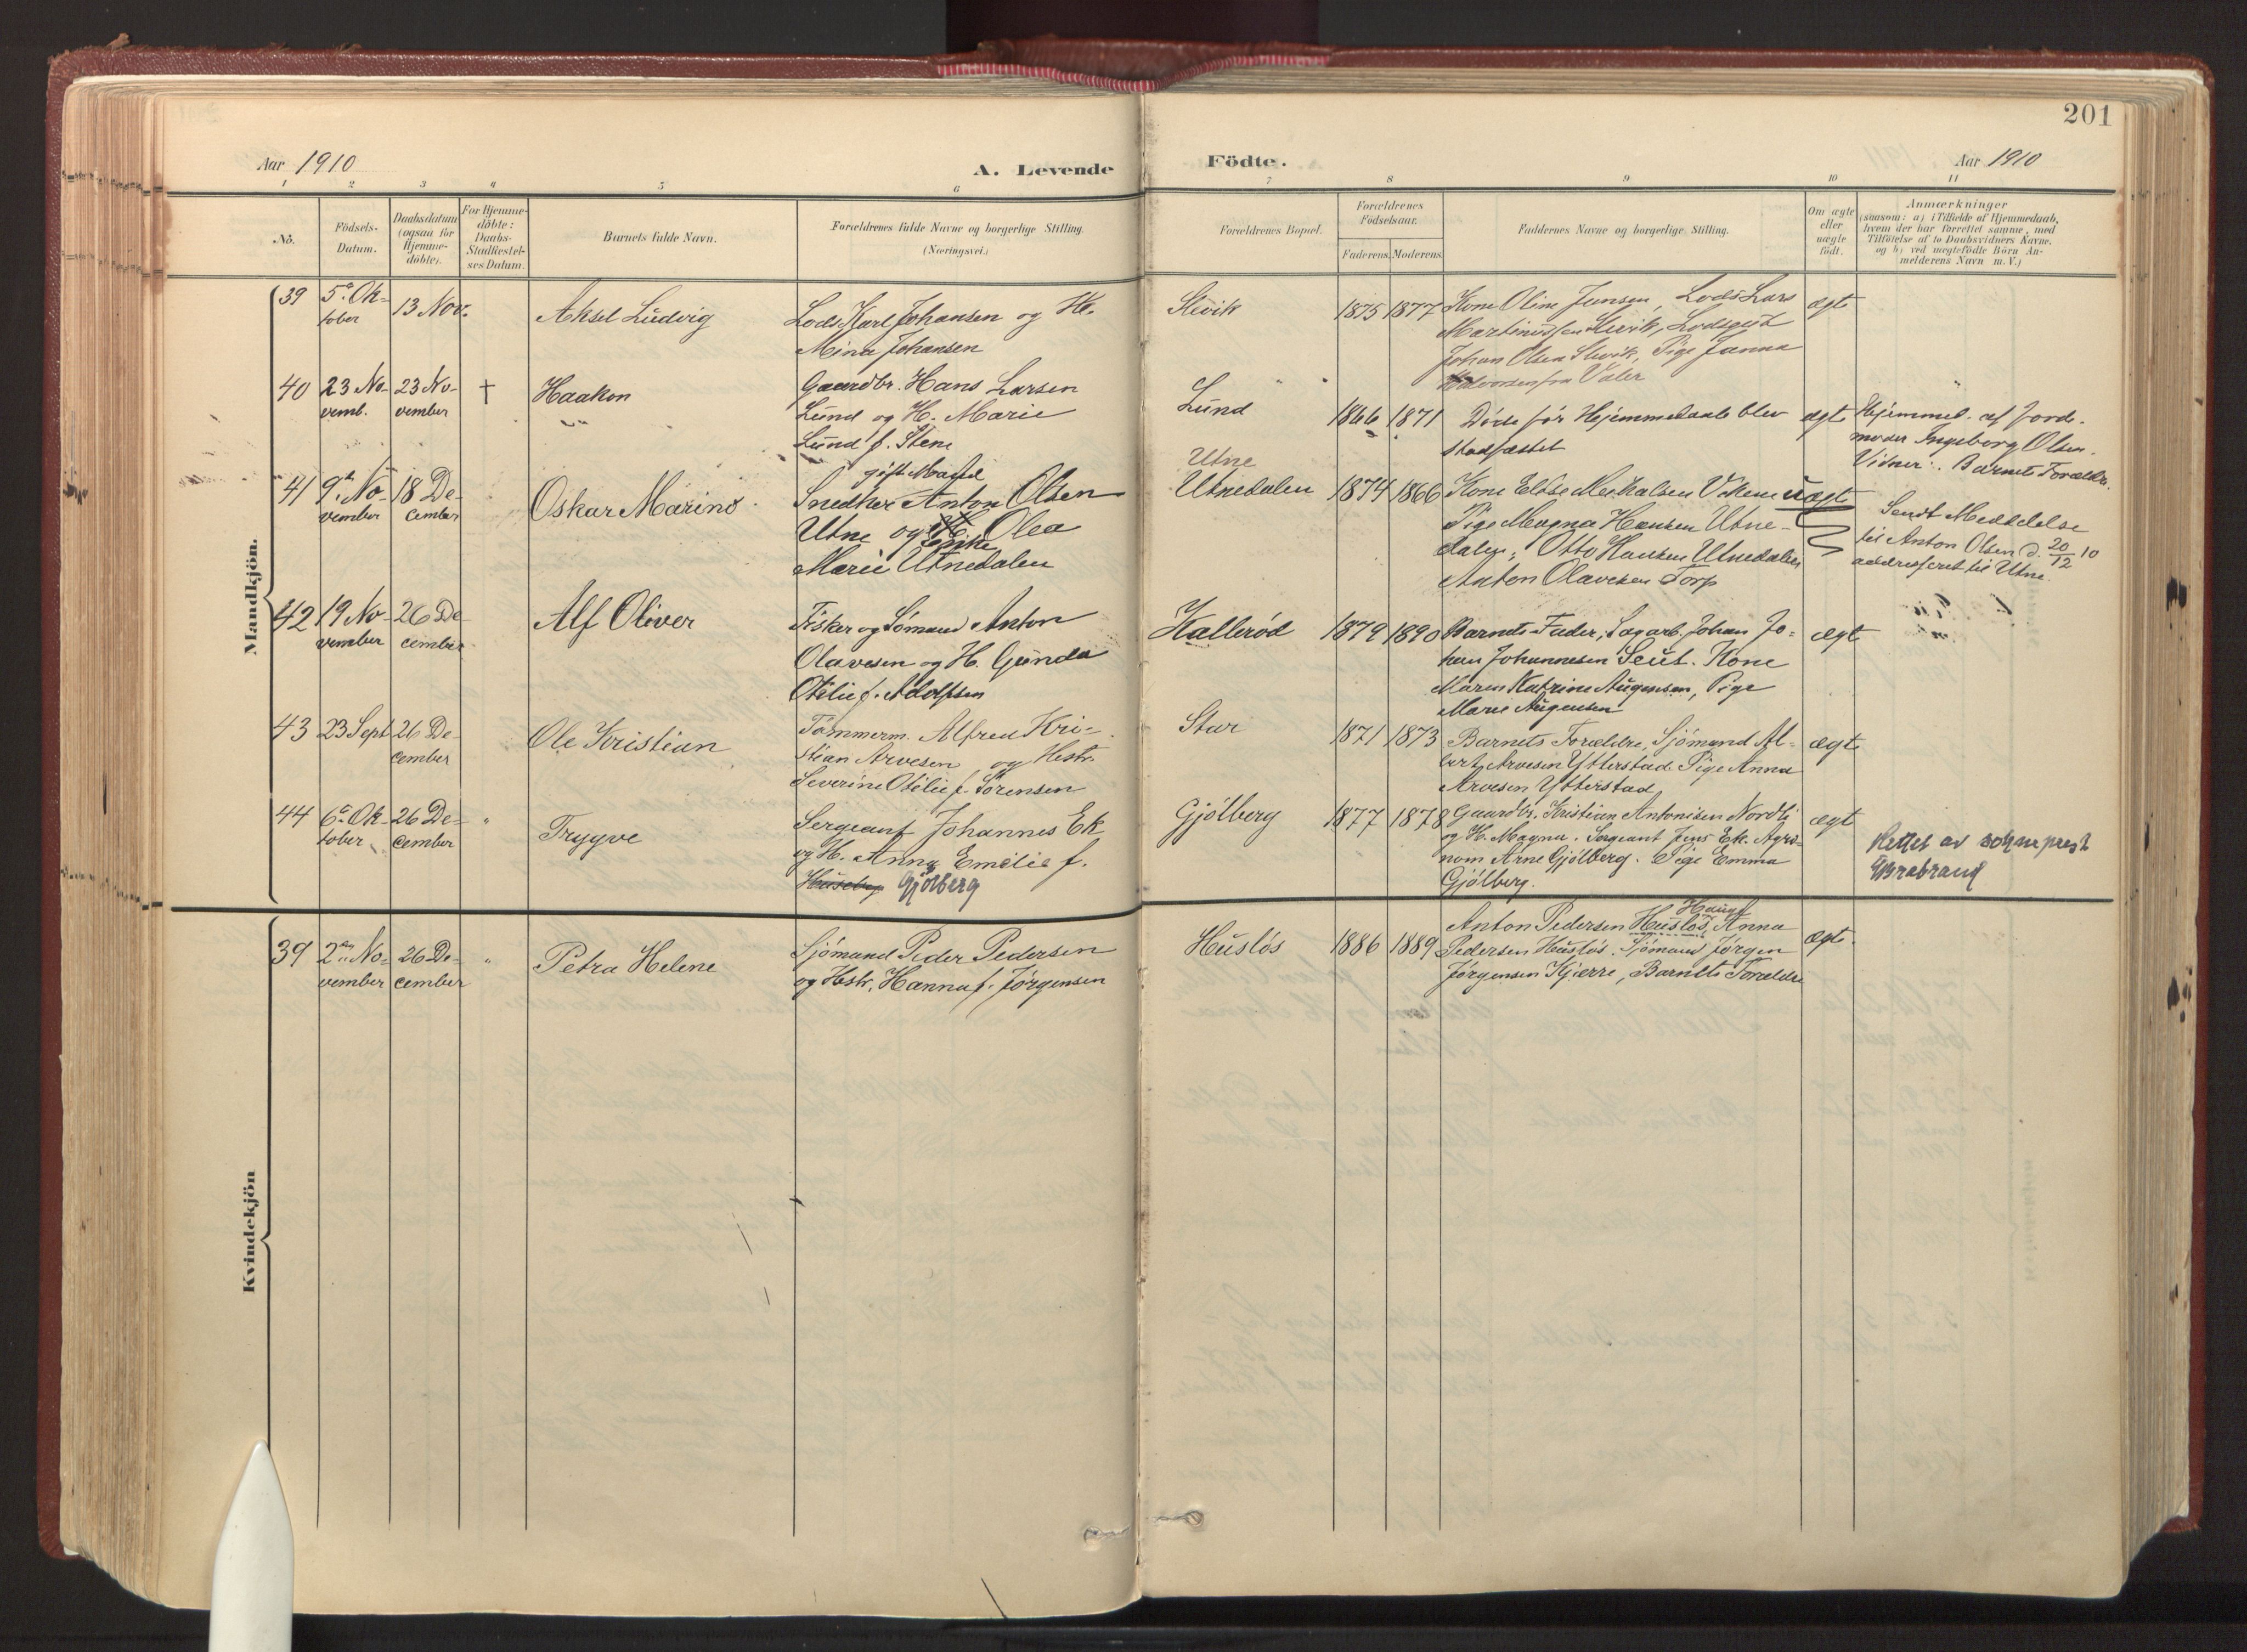 201
Aar 1910
A. Levende
Födte.
Aar 1910
1 2 3 4 5 6 7 8 9 10 11
No.
Födsels-
Datum.
Daabsdatum
(ogsaa for
Hjemme-
döbte).
For Hjemme-
döbte:
Daabs-
Stadfæstel-
ses Datum.
Barnets fulde Navn.
Forældrenes fulde Navne og borgerlige Stilling.
(Næringsvei.)
Forældrenes Bopæl.
Forældrenes
Födselsaar.
Faderens. Moderens.
Faddernes Navne og borgerlige Stilling.
Om ægte
eller
uægte
födt.
Anmærkninger
(saasom: a) i Tilfælde af Hjemmedaab,
hvem der har forrettet samme, med
Tilföielse af to Daabsvidners Navne,
og b) ved uægtefödte Börn An-
melderens Navn m. V.)
Mandkjön.
39
5te Ok-
tober
13 Nov.
Aksel Ludvig
Lods Karl Johansen og H.
Mina Johansen
Slevik
1875 1877
Kone Oline Jensen, Lods Lars
Martinussen Slevik, Lodsgut
Johan Olsen Slevik, Pige Janna
Halvorsen fra Valer
ægte
40
23 No-
vemb.
23 No-
vember
†
Haakon
Gaardbr. Hans Larsen
Lund og H. Marie
Lund f. Stene
Lund
1866 1871
Døde før Hjemmedaab blev
stadfæstet
ægte
Hjemmed. af Jord-
moder Ingeborg Olsen.
Vidner: Barnets Forældr.
41
9de No-
vember
18 De-
cember
Oskar Marino
gift Mand
Snedker Anton Olsen
Utne og H. Enke Olea
Marie Utnedalen
Utne
Utnedalen
1874 1866
Kone Elise Mikalsen Viken
Pige Magna Hansen Utne-
dalen, Otto Hansen Utnedalen
Anton Olavesen Torp
uægte
Sendt Meddelse
til Anton Olsen d. 20/12 10
addresseret til Utne.
42
19 No-
vember
26 De-
cember
Alf Oliver
Fisker og Sömand Anton
Olavesen og H. Gunda
Otilie f. Adolfsen
Kallerød
1879 1890
Barnets Fader, Sagarb. Johan Jo-
han Johannesen Seut. Kone
Maren Katrine Augensen, Pige
Marie Augensen
ægte
43
23 Sept
26 De-
cember
Ole Kristian
Tömmerm. Alfred Kri-
stian Arvesen og Hustr.
Severine Otilie f. Sörensen
Stur
1871 1873
Barnets Forældre, Sjömand Al-
bert Arvesen Ytterstad. Pige Anna
Arvesen Ytterstad
ægte
44
6te Ok-
tober
26 De-
cember
"
Trygve
Sergeant Johannes Ek
og H. Anna Emilie f.
Huseby Gjölberg
Gjölberg
1877 1878
Gaardbr. Kristian Antonisen Nordli
og H. Magna. Sergeant Jens Ek. Agro-
nom Arne Gjölberg. Pige Emma
Gjölberg.
ægte
Rettet av sogneprest
Brabrand
Kvindekjön
39
2den No-
vember
26 De-
cember
"
Petra Helene
Sjömand Peder Pedersen
og Hstr. Hanna f. Jörgensen
Huslös
1886 1889
Hauge
Anton Pedersen Huslös, Anna
Pedersen Huslös. Sjömand Jörgen
Jörgensen Kjerre, Barnets Forældre
ægte.